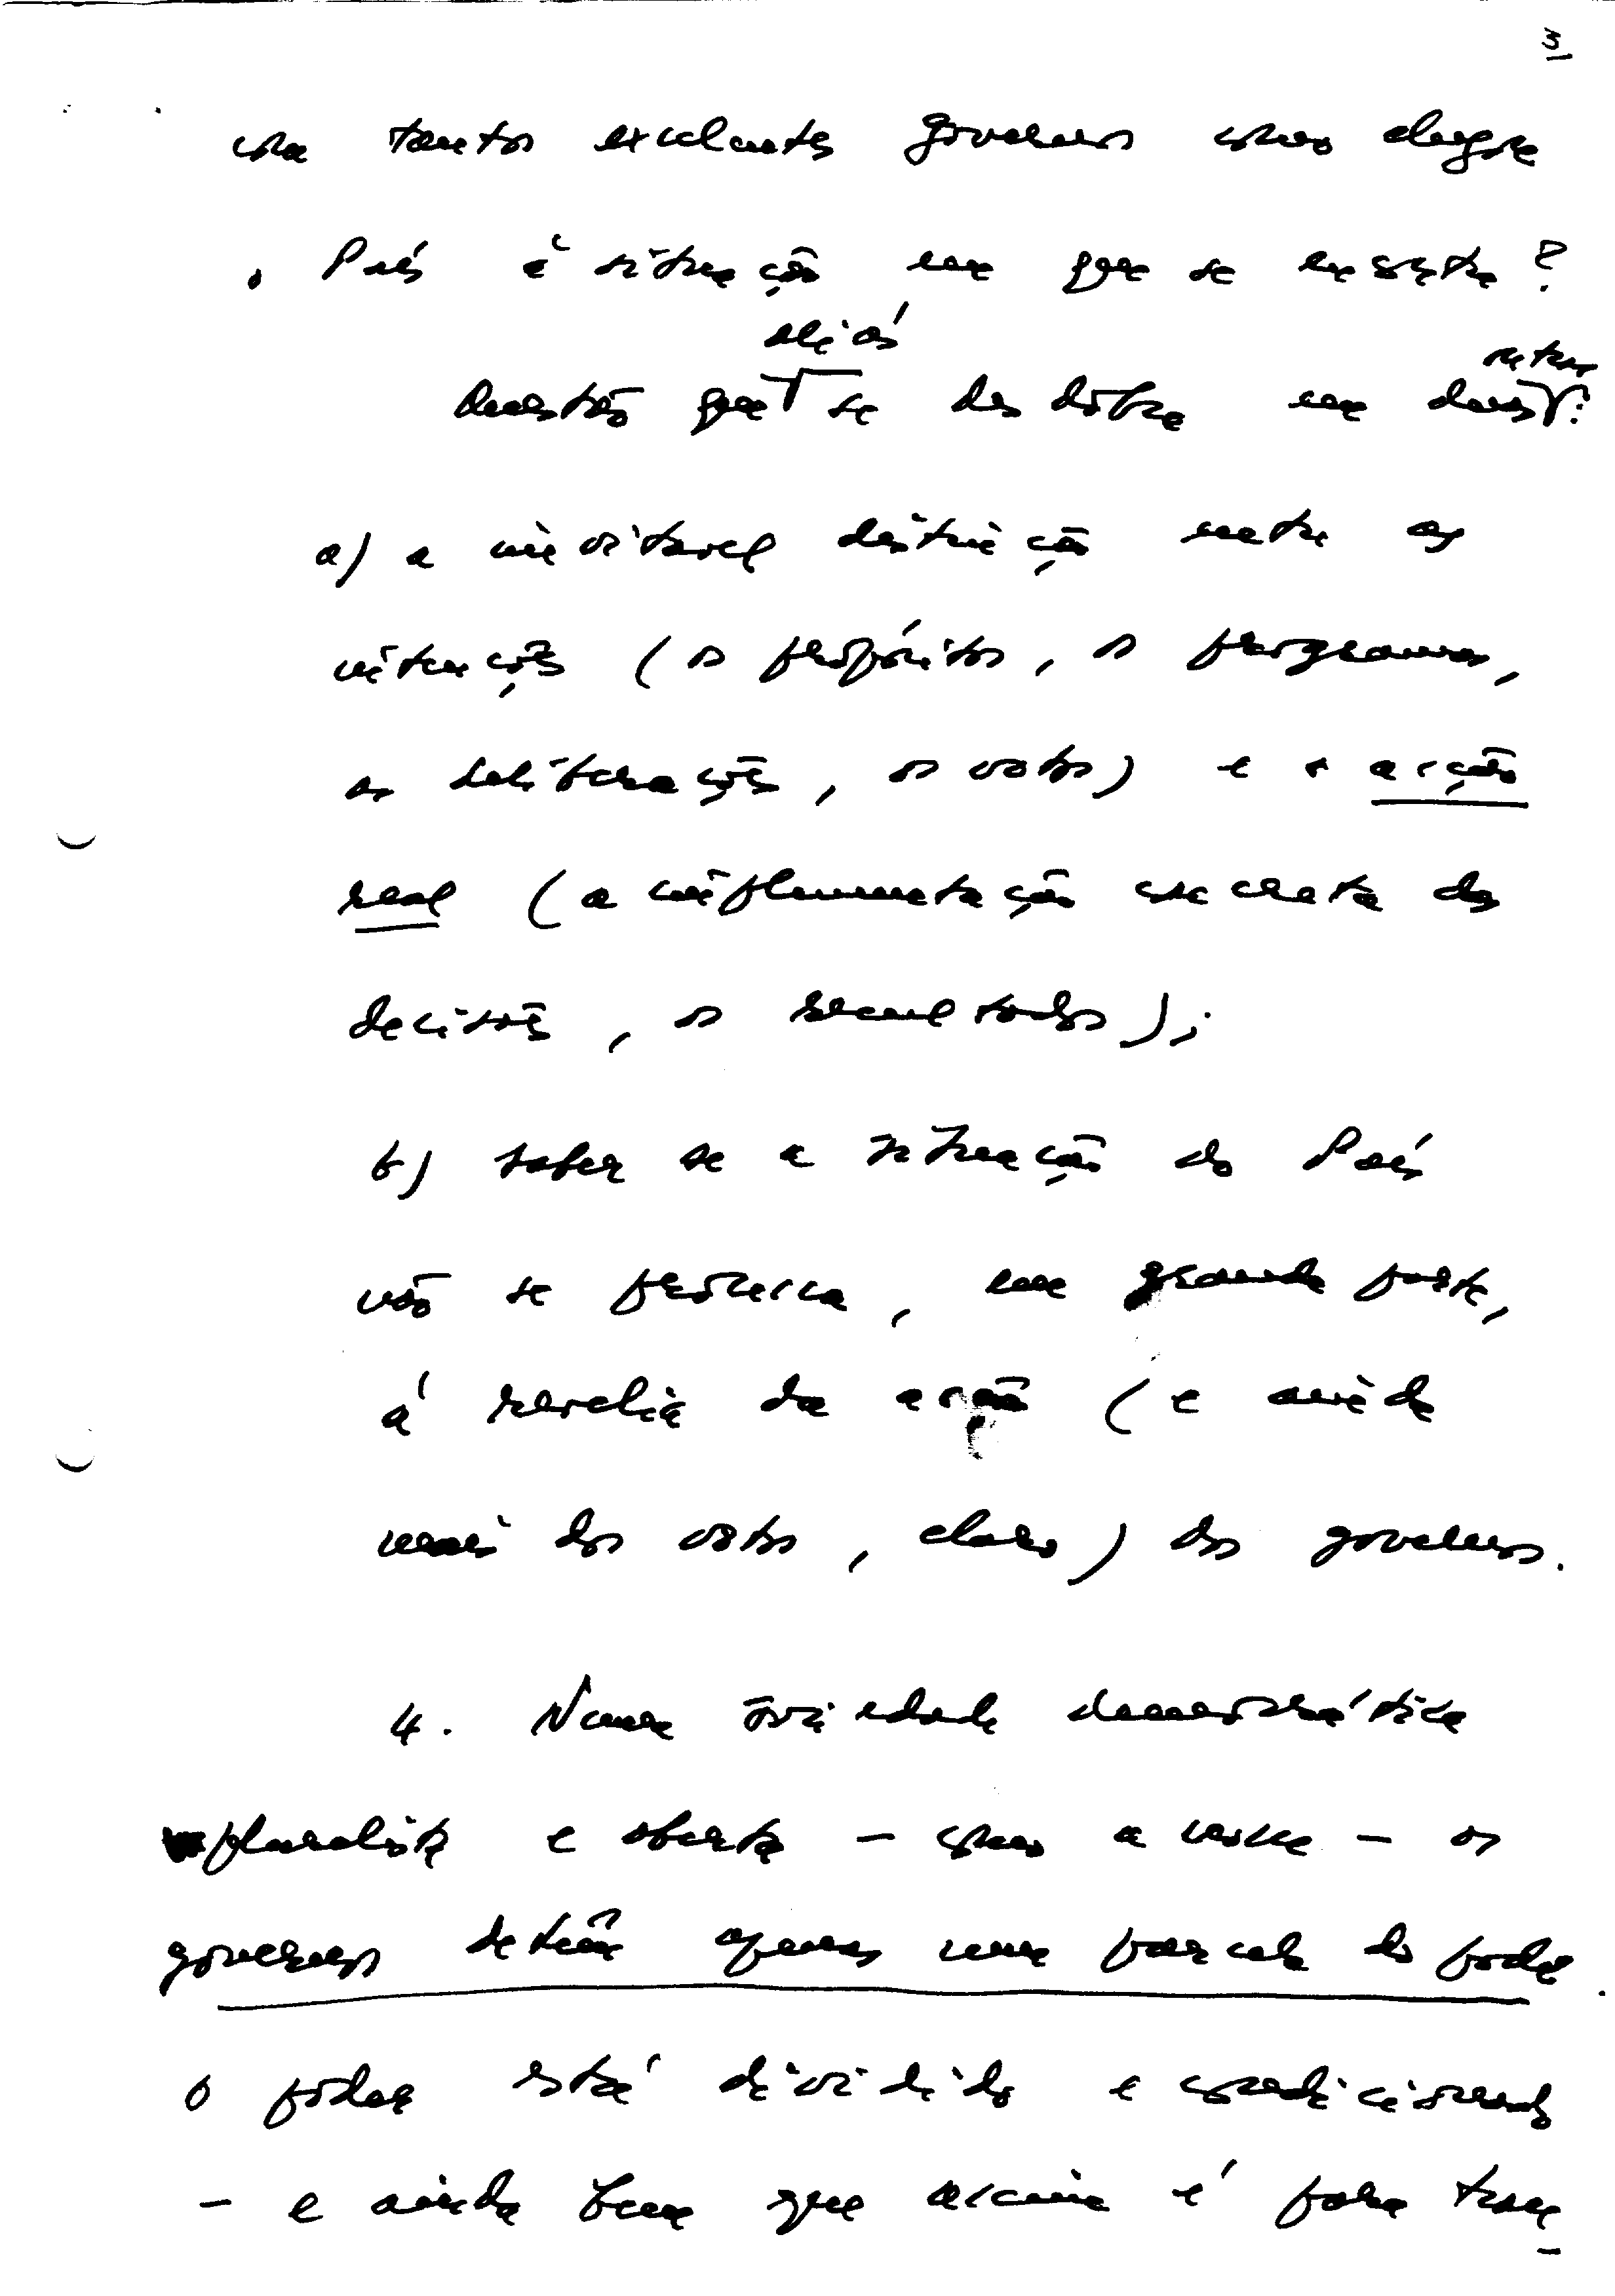 3
com tantos excelentes governos como chegou
o País à situação em que se encontra?
aliás
Questão que se desdobra em duas
outras:
a) a inevitável distinção entre as
intenções (os propósitos, os programas,
as deliberações, os votos) e a acção
real (a implementação concreta das
decisões, os resultados);
b) saber se a situação do País
não se processa, em grande parte,
à revelia da acção (e ainda
mais dos votos, claro) dos governos.
4. Numa sociedade democrática
pluralista e aberta – como a nossa – os
governos detêm apenas uma parcela do poder.
O poder está dividido e condicionado
– e ainda bem que assim é para tran-